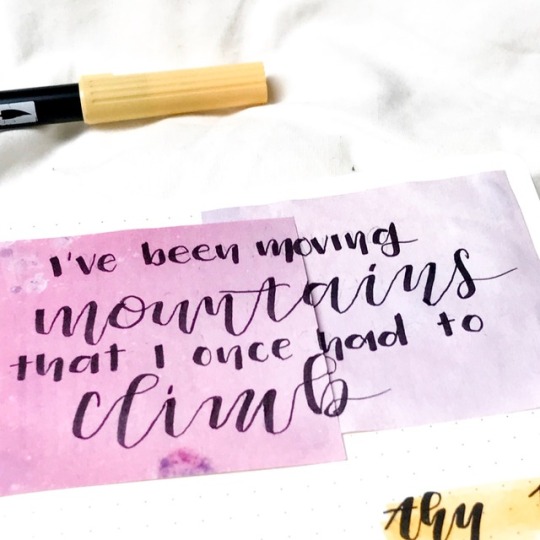 I've been moving
mountains
that I once had to
climb
thy